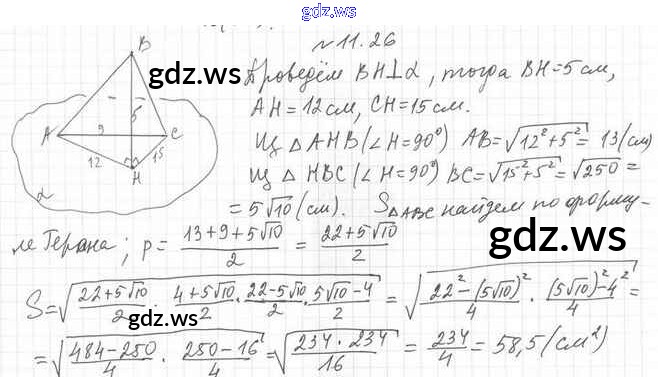 gdz.ws
№ 11.26
B
gdz.ws
Проведём BH⊥α, тогда BH=5 см,
AH=12 см, CH=15 см.
5
A 9 C
12 15
H
α
Из △AHB (∠H=90°) AB=√(12²+5²)= 13 (см)
Из △HBC (∠H=90°) BC=√(15²+5²)=√250 =
= 5√10 (см). S△ABC найдем по форму-
ле Герона; p= (13+9+5√10)/2 = (22+5√10)/2
gdz.ws
S=√((22+5√10)/2 · (4+5√10)/2 · (22-5√10)/2 · (5√10-4)/2) = √((22²-(5√10)²)/4 · ((5√10)²-4²)/4) =
gdz.ws
=√((484-250)/4 · (250-16)/4) = √((234·234)/16) = 234/4 = 58,5 (см²)